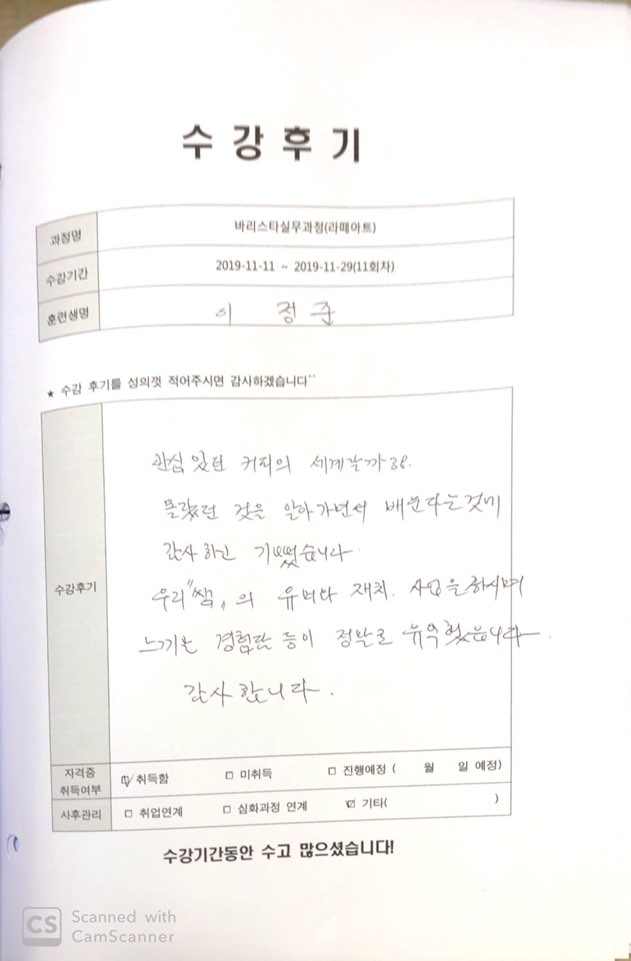 수강후기
과정명 바리스타실무과정(라떼아트)
수강기간 2019-11-11 ~ 2019-11-29(11회차)
훈련생명 이 정 준
★ 수강 후기를 성의껏 적어주시면 감사하겠습니다^^
수강후기
관심 있던 커피의
몰랐던 것을 알아가면서 배운다는것에
감사하고 기뻤습니다.
우리 "쌤"의 유머와 재치. 사업을 하시며
느끼는 경험담 등이 정말로 유익했습니다.
감사합니다.
자격증 취득여부 ☑ 취득함 □ 미취득 □ 진행예정 ( 월 일 예정)
사후관리 □ 취업연계 □ 심화과정 연계 ☑ 기타( )
수강기간동안 수고 많으셨습니다!
CS Scanned with
CamScanner